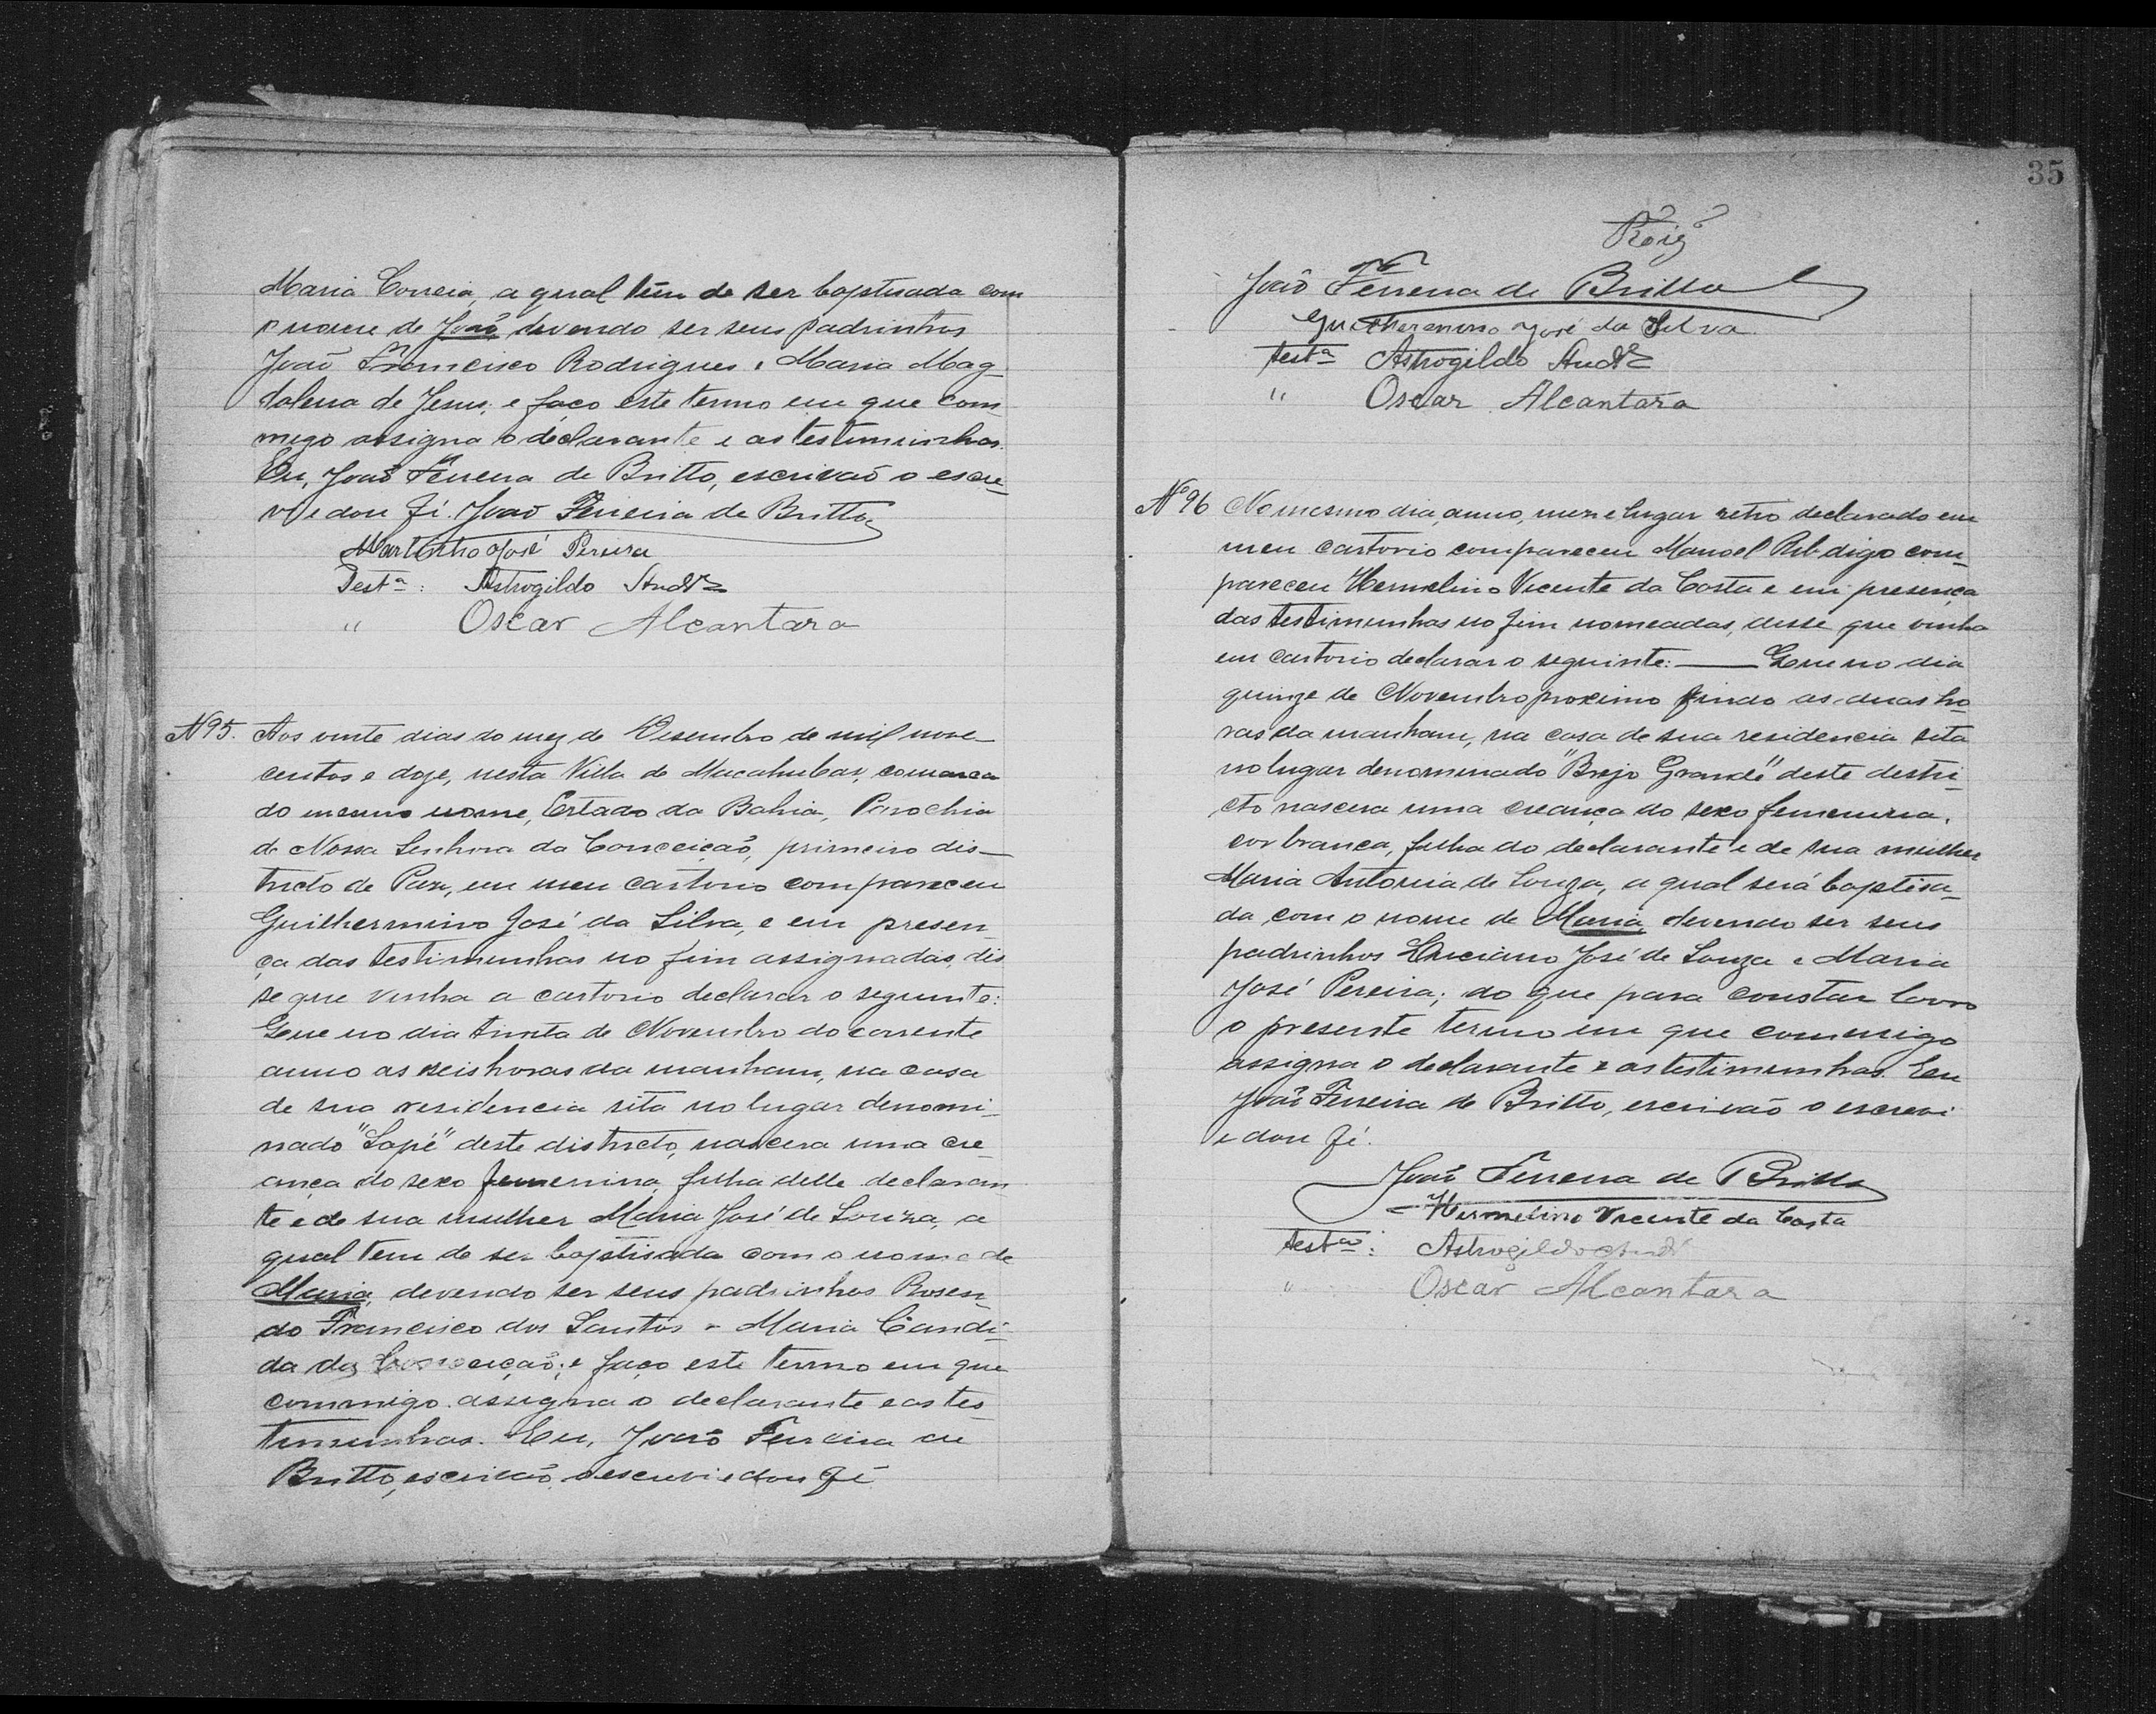 Maria Correia, a qual têm de ser baptisada com
o nome de João, devendo ser seus padrinhos
João Francisco Rodrigues e Maria Mag-
dalena de Jesus; e faço este termo em que com-
migo assigna o declarante e as testimunhas.
Eu, João Ferreira de Britto, escrivão o escre-
vi e dou fé. João Ferreira de Britto
Martinho José Pereira
Testª: Astrogildo
" Oscar Alcantara
Nº 95. Aos vinte dias do mez de Desembro de mil nove
centos e doze, nesta Villa de Macahubas, comarca
do mesmo nome, Estado da Bahia, Parochia
de Nossa Senhora da Conceição, primeiro dis-
tricto de Paz, em meu cartorio compareceu
Guilhermino José da Silva, e em presen-
ça das testimunhas no fim assignadas, dis
se que vinha a cartorio declarar o seguinte:
Que no dia trinta de Novembro do corrente
anno as seis horas da manham, na casa
de sua residencia sita no lugar denomi-
nado "Sapé" deste districto, nascera uma cre
ança do sexo femenino, filha delle declaran
te e de sua mulher Maria José de Souza, a
qual tem de ser baptisada com o nome de
Maria, devendo ser seus padrinhos Rosen-
do Francisco dos Santos e Maria Candi-
da da Conceição; e faço este termo em que
commigo assigna o declarante e as tes-
timunhas. Eu, João Ferreira de
Britto, escrivão o escrevi e dou fé
35
João Ferreira de Britto
Guilhermino José da Silva.
testª Astrogildo
" Oscar Alcantara
Nº 96 No mesmo dia, anno, mez e lugar retro declarado em
meu cartorio compareceu Manoel digo com-
pareceu Hermelino Vicente da Costa e em presença
das testimunhas no fim nomeadas, disse que vinha
em cartorio declarar o seguinte: — Que no dia
quinze de Novembro proximo findo as duas ho-
ras da manham, na casa de sua residencia sita
no lugar denominado "Brejo Grande" deste destri-
cto nascera uma creança do sexo femenina,
cor branca, filha do declarante e de sua mulher
Maria Antonia de Souza, a qual será baptisa-
da com o nome de Maria, devendo ser seus
padrinhos Luciano José de Souza e Maria
José Pereira; do que para constar lavro
o presente termo em que commigo
assigna o declarante e as testimunhas. Eu
João Ferreira de Britto, escrivão o escrevi
e dou fé.
João Ferreira de Britto
Hermelino Vicente da Costa
testas: Astrogildo
" Oscar Alcantara